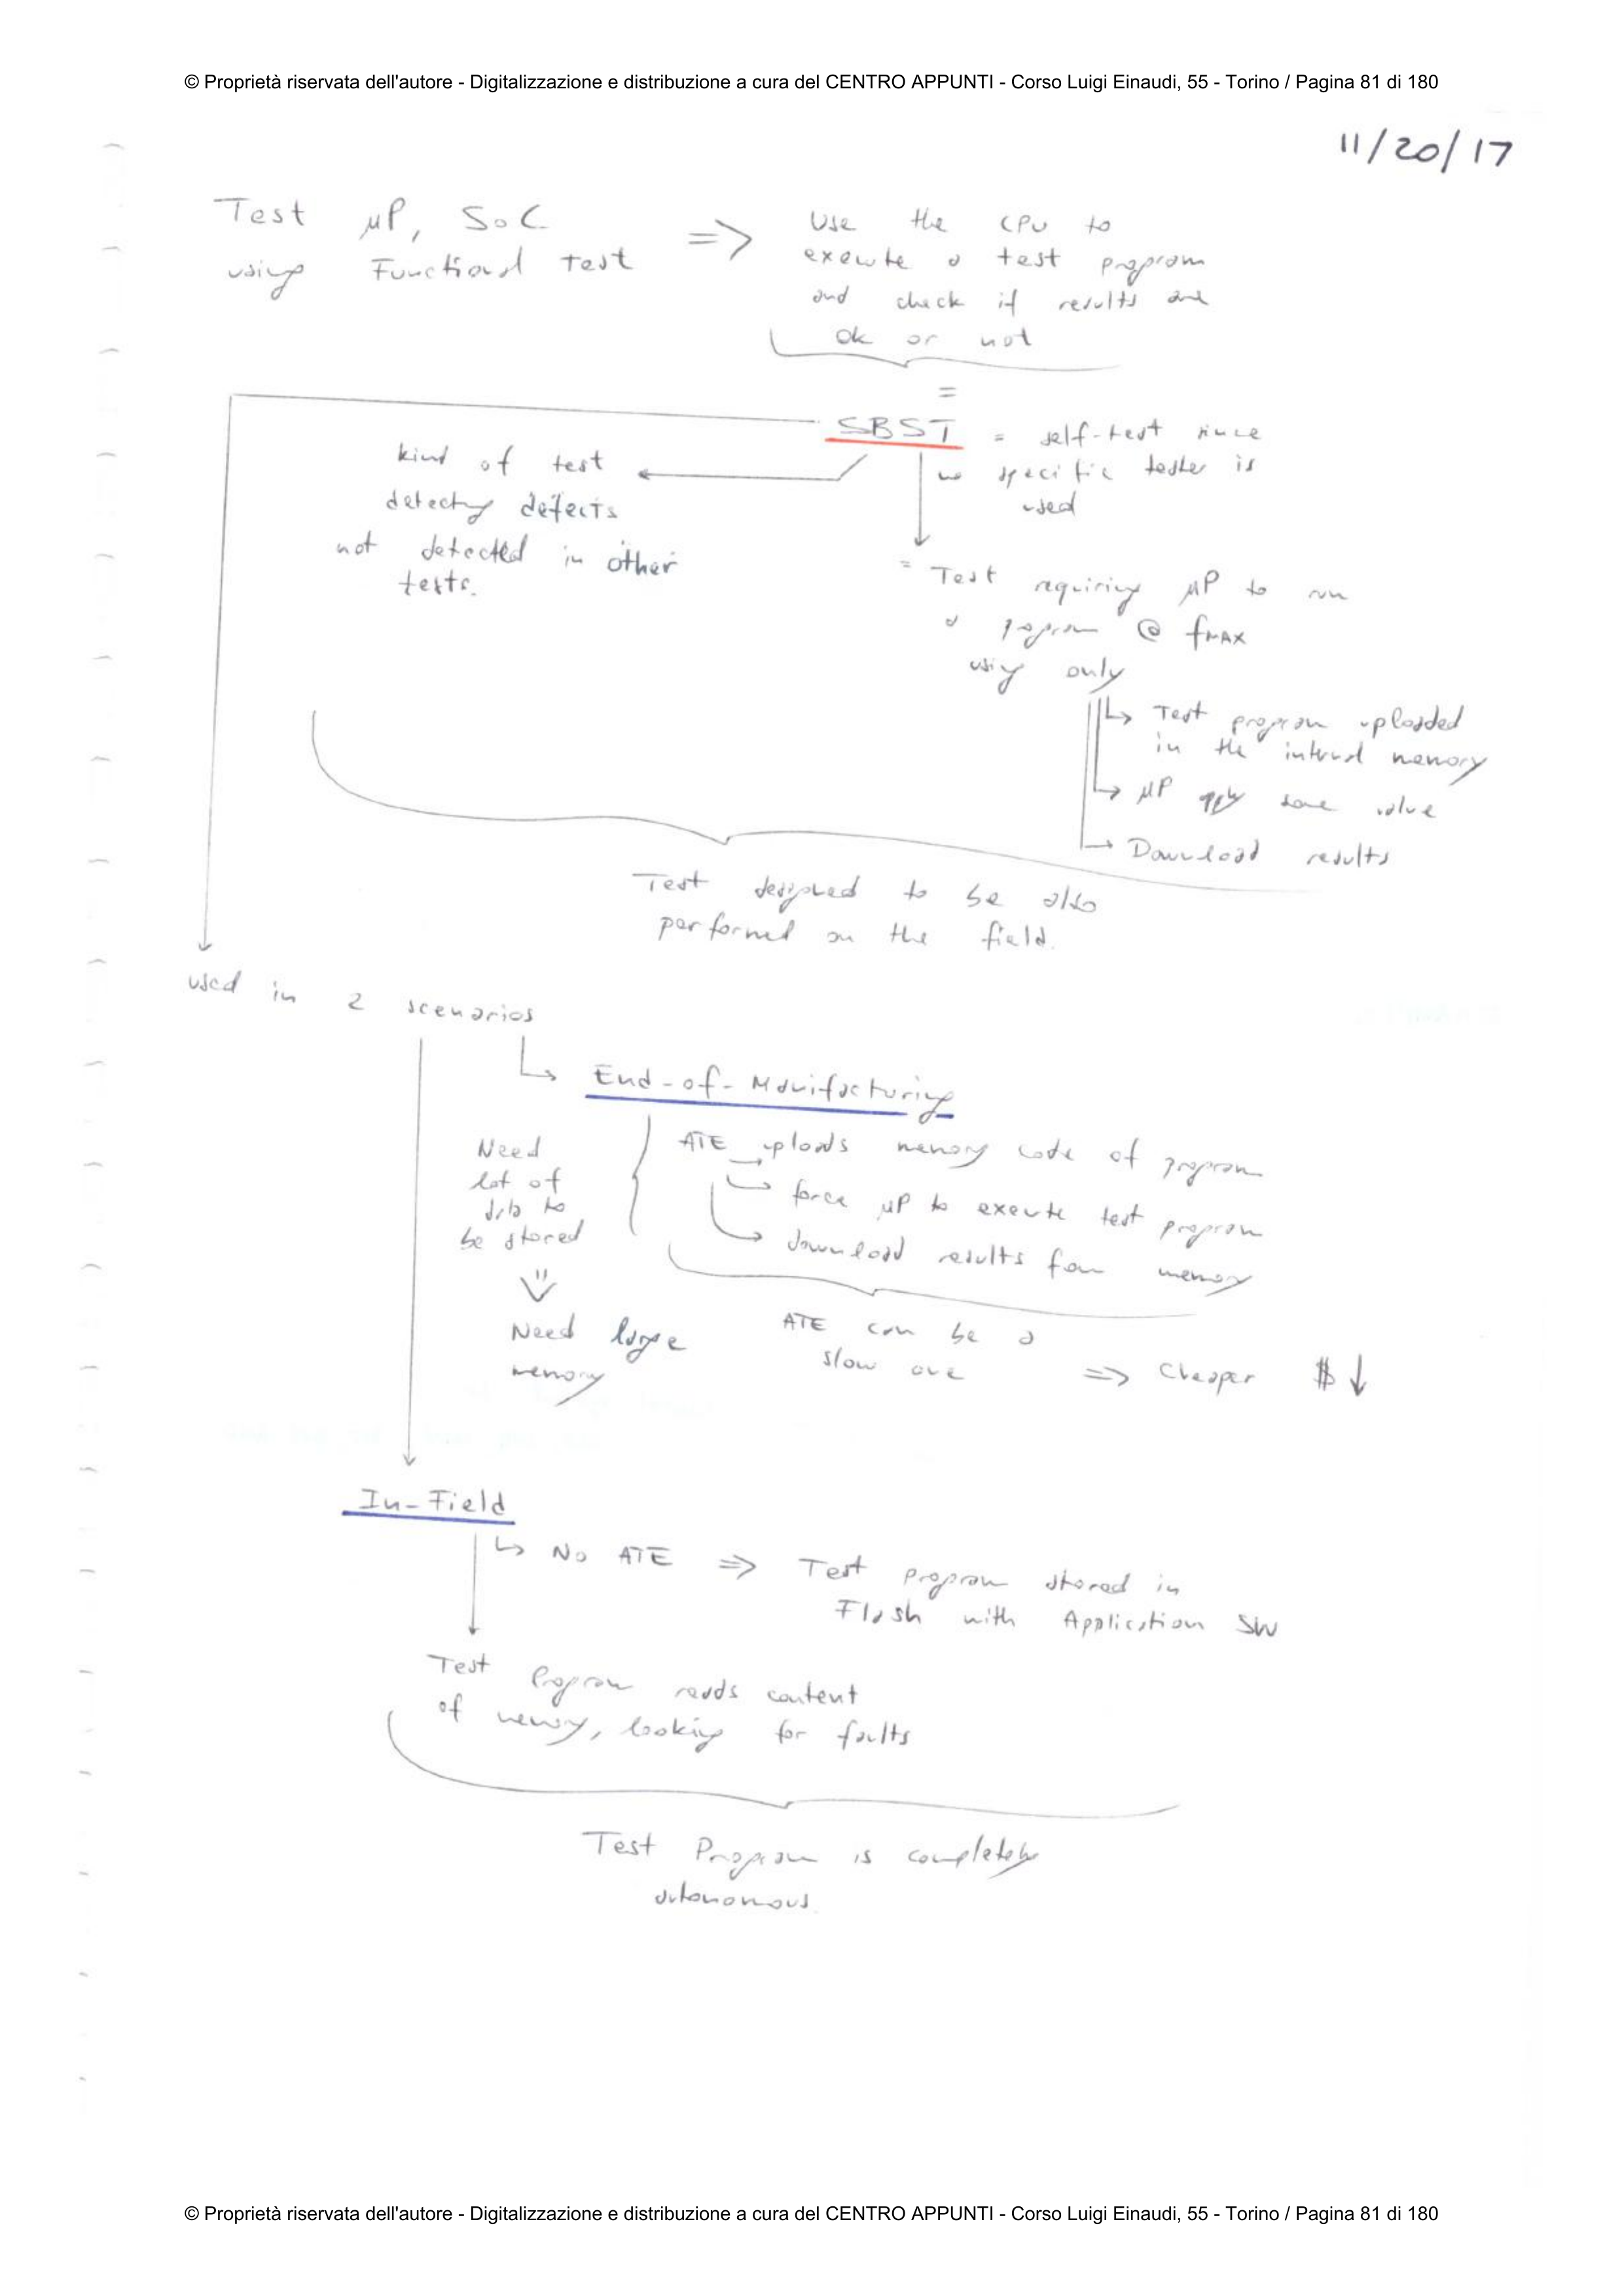 © Proprietà riservata dell'autore - Digitalizzazione e distribuzione a cura del CENTRO APPUNTI - Corso Luigi Einaudi, 55 - Torino / Pagina 81 di 180
11/20/17
Test μP, SoC
using Functional test
=>
Use the CPU to
execute a test program
and check if results are
ok or not
=
SBST = self-test since
no specific tester is
used
kind of test
detecting defects
not detected in other
tests.
= Test requiring μP to run
a program @ fMAX
using only
Test program uploaded
in the internal memory
μP apply some value
Download results
Test designed to be also
performed on the field.
used in 2 scenarios
End-of-Manifacturing
ATE uploads memory code of program
force μP to execute test program
download results from memory
Need
lot of
data to
be stored
Need large
memory
ATE can be a
slow one => Cheaper $↓
In-Field
No ATE => Test program stored in
Flash with Application SW
Test Program reads content
of memory, looking for faults
Test Program is completely
autonomous.
© Proprietà riservata dell'autore - Digitalizzazione e distribuzione a cura del CENTRO APPUNTI - Corso Luigi Einaudi, 55 - Torino / Pagina 81 di 180